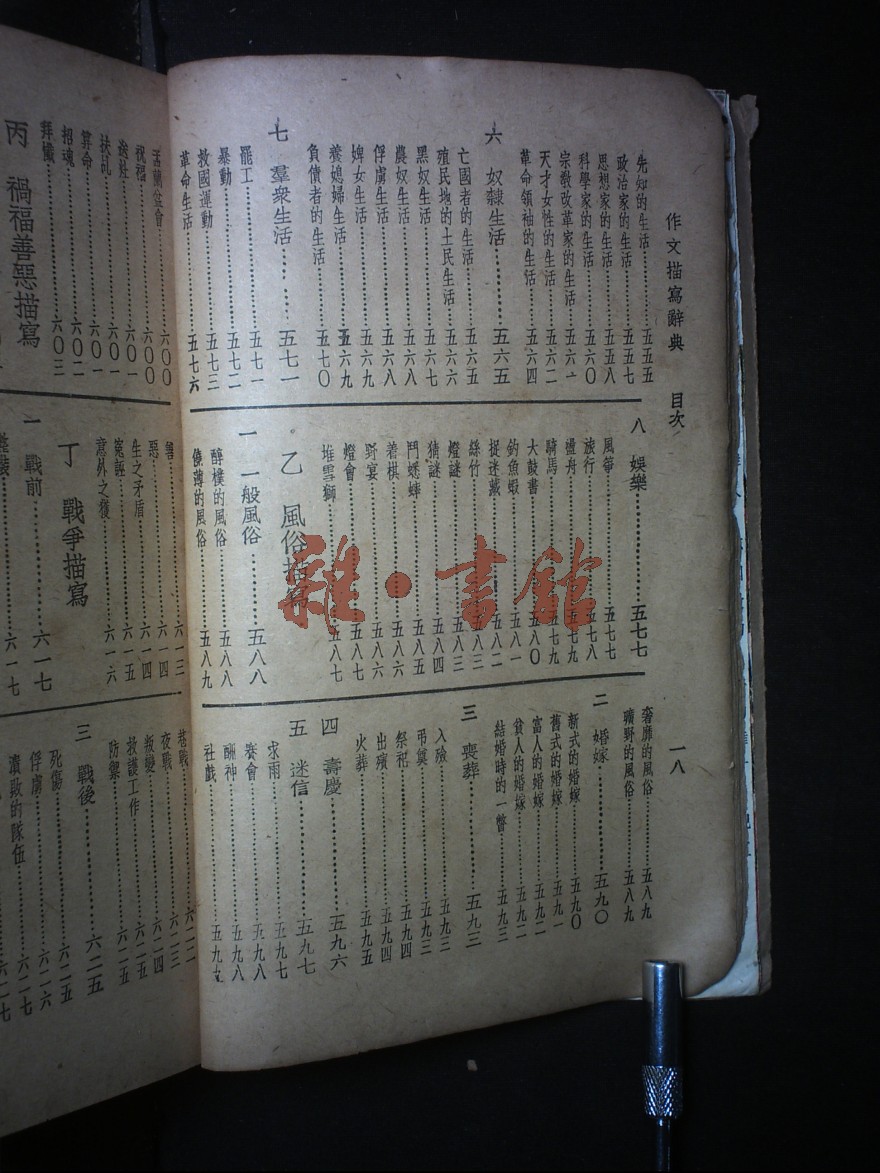 作文描寫辭典 目次 一八
先知的生活……五五五
政治家的生活……五五七
思想家的生活……五五八
科學家的生活……五六〇
宗敎改革家的生活……五六一
天才女性的生活……五六二
革命領袖的生活……五六四
六 奴隸生活……五六五
亡國者的生活……五六五
殖民地的土民生活……五六六
黑奴生活……五六七
農奴生活……五六八
俘虜生活……五六八
婢女生活……五六九
養媳婦生活……五六九
負債者的生活……五七〇
七 羣衆生活……五七一
罷工……五七一
暴動……五七二
救國運動……五七三
革命生活……五七六
八 娛樂……五七七
風箏……五七七
旅行……五七八
盪舟……五七九
騎馬……五七九
大鼓書……五八〇
釣魚蝦……五八一
捉迷藏……五八二
絲竹……五八三
燈謎……五八三
猜謎……五八四
鬥蟋蟀……五八五
着棋……五八六
野宴……五八六
燈會……五八七
堆雪獅……五八七
乙 風俗描寫
一 一般風俗……五八八
醇樸的風俗……五八八
僥薄的風俗……五八九
奢靡的風俗……五八九
獷野的風俗……五八九
二 婚嫁……五九〇
新式的婚嫁……五九〇
舊式的婚嫁……五九一
富人的婚嫁……五九二
貧人的婚嫁……五九二
結婚時的一瞥……五九三
三 喪葬……五九三
入殮……五九三
弔奠……五九三
祭祀……五九四
出殯……五九四
火葬……五九五
四 壽慶……五九六
五 迷信……五九七
求雨……五九七
賽會……五九八
酬神……五九八
社戲……五九九
盂蘭盆會……六〇〇
祝福……六〇〇
扶乩……六〇一
算命……六〇一
招魂……六〇二
拜懺……六〇三
丙 禍福善惡描寫
善……六一三
惡……六一四
生之矛盾……六一四
冤誣……六一五
意外之獲……六一六
丁 戰爭描寫
一 戰前……六一七
六一七
巷戰……六二二
夜戰……六二三
叛變……六二四
救護工作……六二五
防禦……六二五
三 戰後……六二五
死傷……六二五
俘虜……六二六
潰敗的隊伍……六二七
六二七
雜·書館